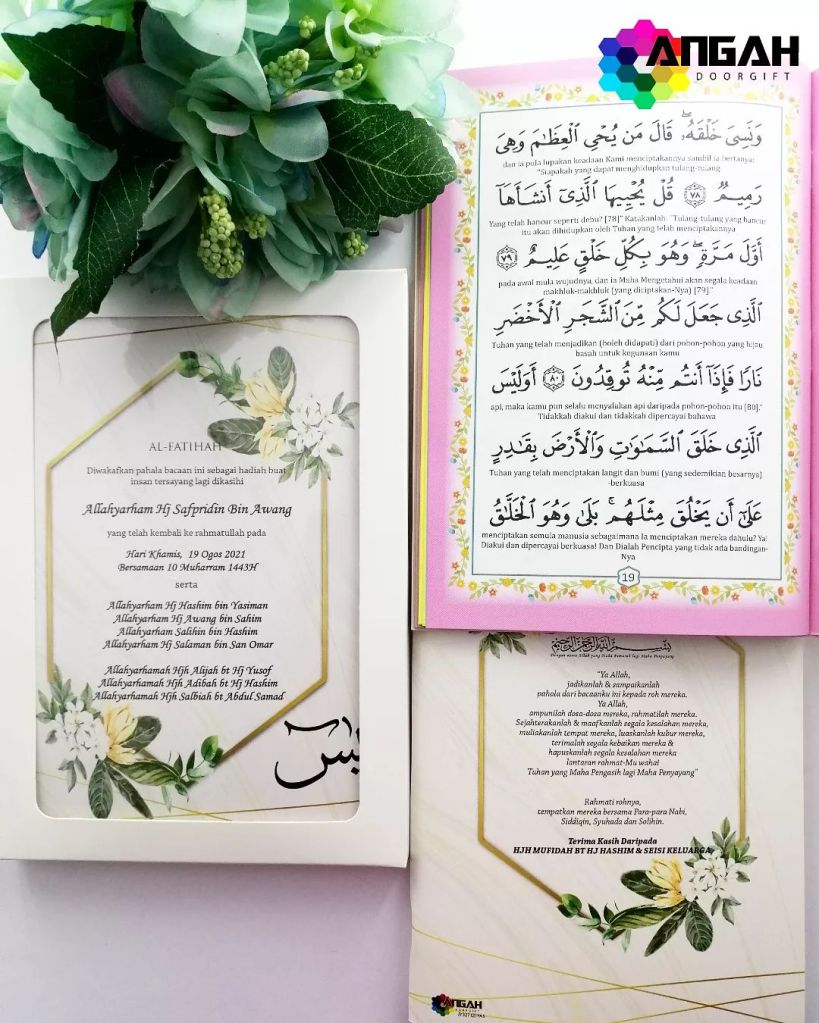 ANGAH
DOORGIFT
وَنَسِيَ خَلْقَهُۥ ۖ قَالَ مَن يُحْىِ ٱلْعِظَٰمَ وَهِىَ
dan ia pula lupakan keadaan Kami menciptakannya sambil ia bertanya:
"Siapakah yang dapat menghidupkan tulang-tulang
رَمِيمٌ ٧٨ قُلْ يُحْيِيهَا ٱلَّذِىٓ أَنشَأَهَآ
Yang telah hancur seperti debu? [78]" Katakanlah: "Tulang-tulang yang hancur
itu akan dihidupkan oleh Tuhan yang telah menciptakannya
أَوَّلَ مَرَّةٍ ۖ وَهُوَ بِكُلِّ خَلْقٍ عَلِيمٌ ٧٩
pada awal mula wujudnya, dan ia Maha Mengetahui akan segala keadaan
makhluk-makhluk (yang diciptakan-Nya) [79]."
ٱلَّذِى جَعَلَ لَكُم مِّنَ ٱلشَّجَرِ ٱلْأَخْضَرِ
Tuhan yang telah menjadikan (boleh didapati) dari pohon-pohon yang hijau
basah untuk kegunaan kamu
نَارًا فَإِذَآ أَنتُم مِّنْهُ تُوقِدُونَ ٨٠ أَوَلَيْسَ
api, maka kamu pun selalu menyalakan api daripada pohon-pohon itu [80]."
Tidakkah diakui dan tidakkah dipercayai bahawa
ٱلَّذِى خَلَقَ ٱلسَّمَٰوَٰتِ وَٱلْأَرْضَ بِقَٰدِرٍ
Tuhan yang telah menciptakan langit dan bumi (yang sedemikian besarnya)
-berkuasa
عَلَىٰٓ أَن يَخْلُقَ مِثْلَهُم ۚ بَلَىٰ وَهُوَ ٱلْخَلَّٰقُ
menciptakan semula manusia sebagaimana Ia menciptakan mereka dahulu? Ya!
Diakui dan dipercayai berkuasa! Dan Dialah Pencipta yang tidak ada bandingan-
Nya
19
AL-FATIHAH
Diwakafkan pahala bacaan ini sebagai hadiah buat
insan tersayang lagi dikasihi
Allahyarham Hj Safpridin Bin Awang
yang telah kembali ke rahmatullah pada
Hari Khamis, 19 Ogos 2021
Bersamaan 10 Muharram 1443H
serta
Allahyarham Hj Hashim bin Yasiman
Allahyarham Hj Awang bin Sahim
Allahyarham Salihin bin Hashim
Allahyarham Hj Salaman bin San Omar
Allahyarhamah Hjh Alijah bt Hj Yusof
Allahyarhamah Hjh Adibah bt Hj Hashim
Allahyarhamah Hjh Salbiah bt Abdul Samad
بِسْمِ ٱللَّهِ ٱلرَّحْمَٰنِ ٱلرَّحِيمِ
Dengan nama Allah yang Maha Pemurah lagi Maha Penyayang
"Ya Allah,
jadikanlah & sampaikanlah
pahala dari bacaanku ini kepada roh mereka.
Ya Allah,
ampunilah dosa-dosa mereka, rahmatilah mereka.
Sejahterakanlah & maafkanlah segala kesalahan mereka,
muliakanlah tempat mereka, luaskanlah kubur mereka,
terimalah segala kebaikan mereka &
hapuskanlah segala kesalahan mereka
lantaran rahmat-Mu wahai
Tuhan yang Maha Pengasih lagi Maha Penyayang"
Rahmati rohnya,
tempatkan mereka bersama Para-para Nabi,
Siddiqin, Syuhada dan Solihin.
Terima Kasih Daripada
HJH MUFIDAH BT HJ HASHIM & SEISI KELUARGA
ANGAH
DOORGIFT